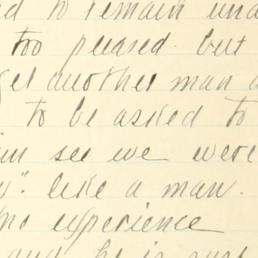 to remain und
too pleased. but
get another man a
to be asked to
see we were
like a man.
experience
and he is